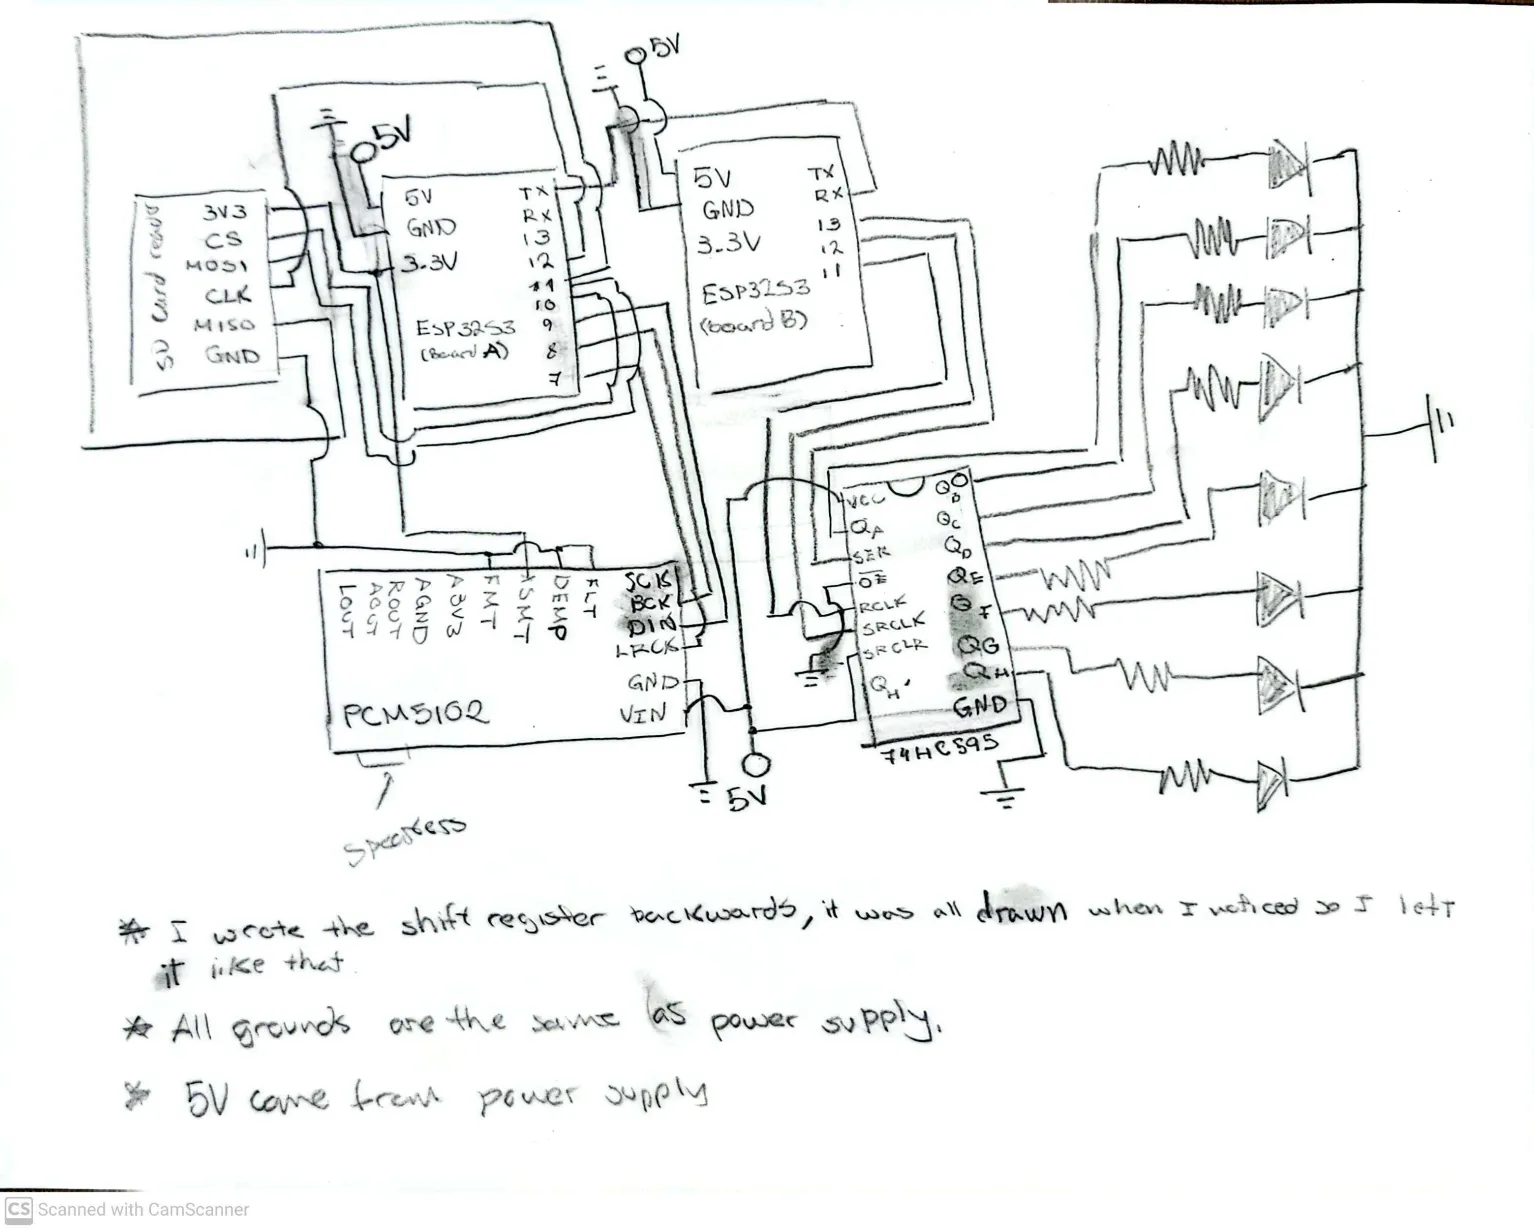 5V
5V
5V
GND
3.3V
ESP32S3
(Board A)
TX
RX
13
12
11
10
9
8
7
5V
GND
3.3V
ESP32S3
(board B)
TX
RX
13
12
11
SD Card
3V3
CS
MOSI
CLK
MISO
GND
LOUT
AGND
ROUT
AGND
A3V3
FMT
XSMT
DEMP
FLT
SCK
BCK
DIN
LRCK
GND
VIN
PCM5102
speakers
5V
VCC
QA
SER
OE
RCLK
SRCLK
SRCLR
QH'
QB
QC
QD
QE
QF
QG
QH
GND
74HC595
* I wrote the shift register backwards, it was all drawn when I noticed so I left
it like that.
* All grounds are the same as power supply.
* 5V come from power supply
CS Scanned with CamScanner